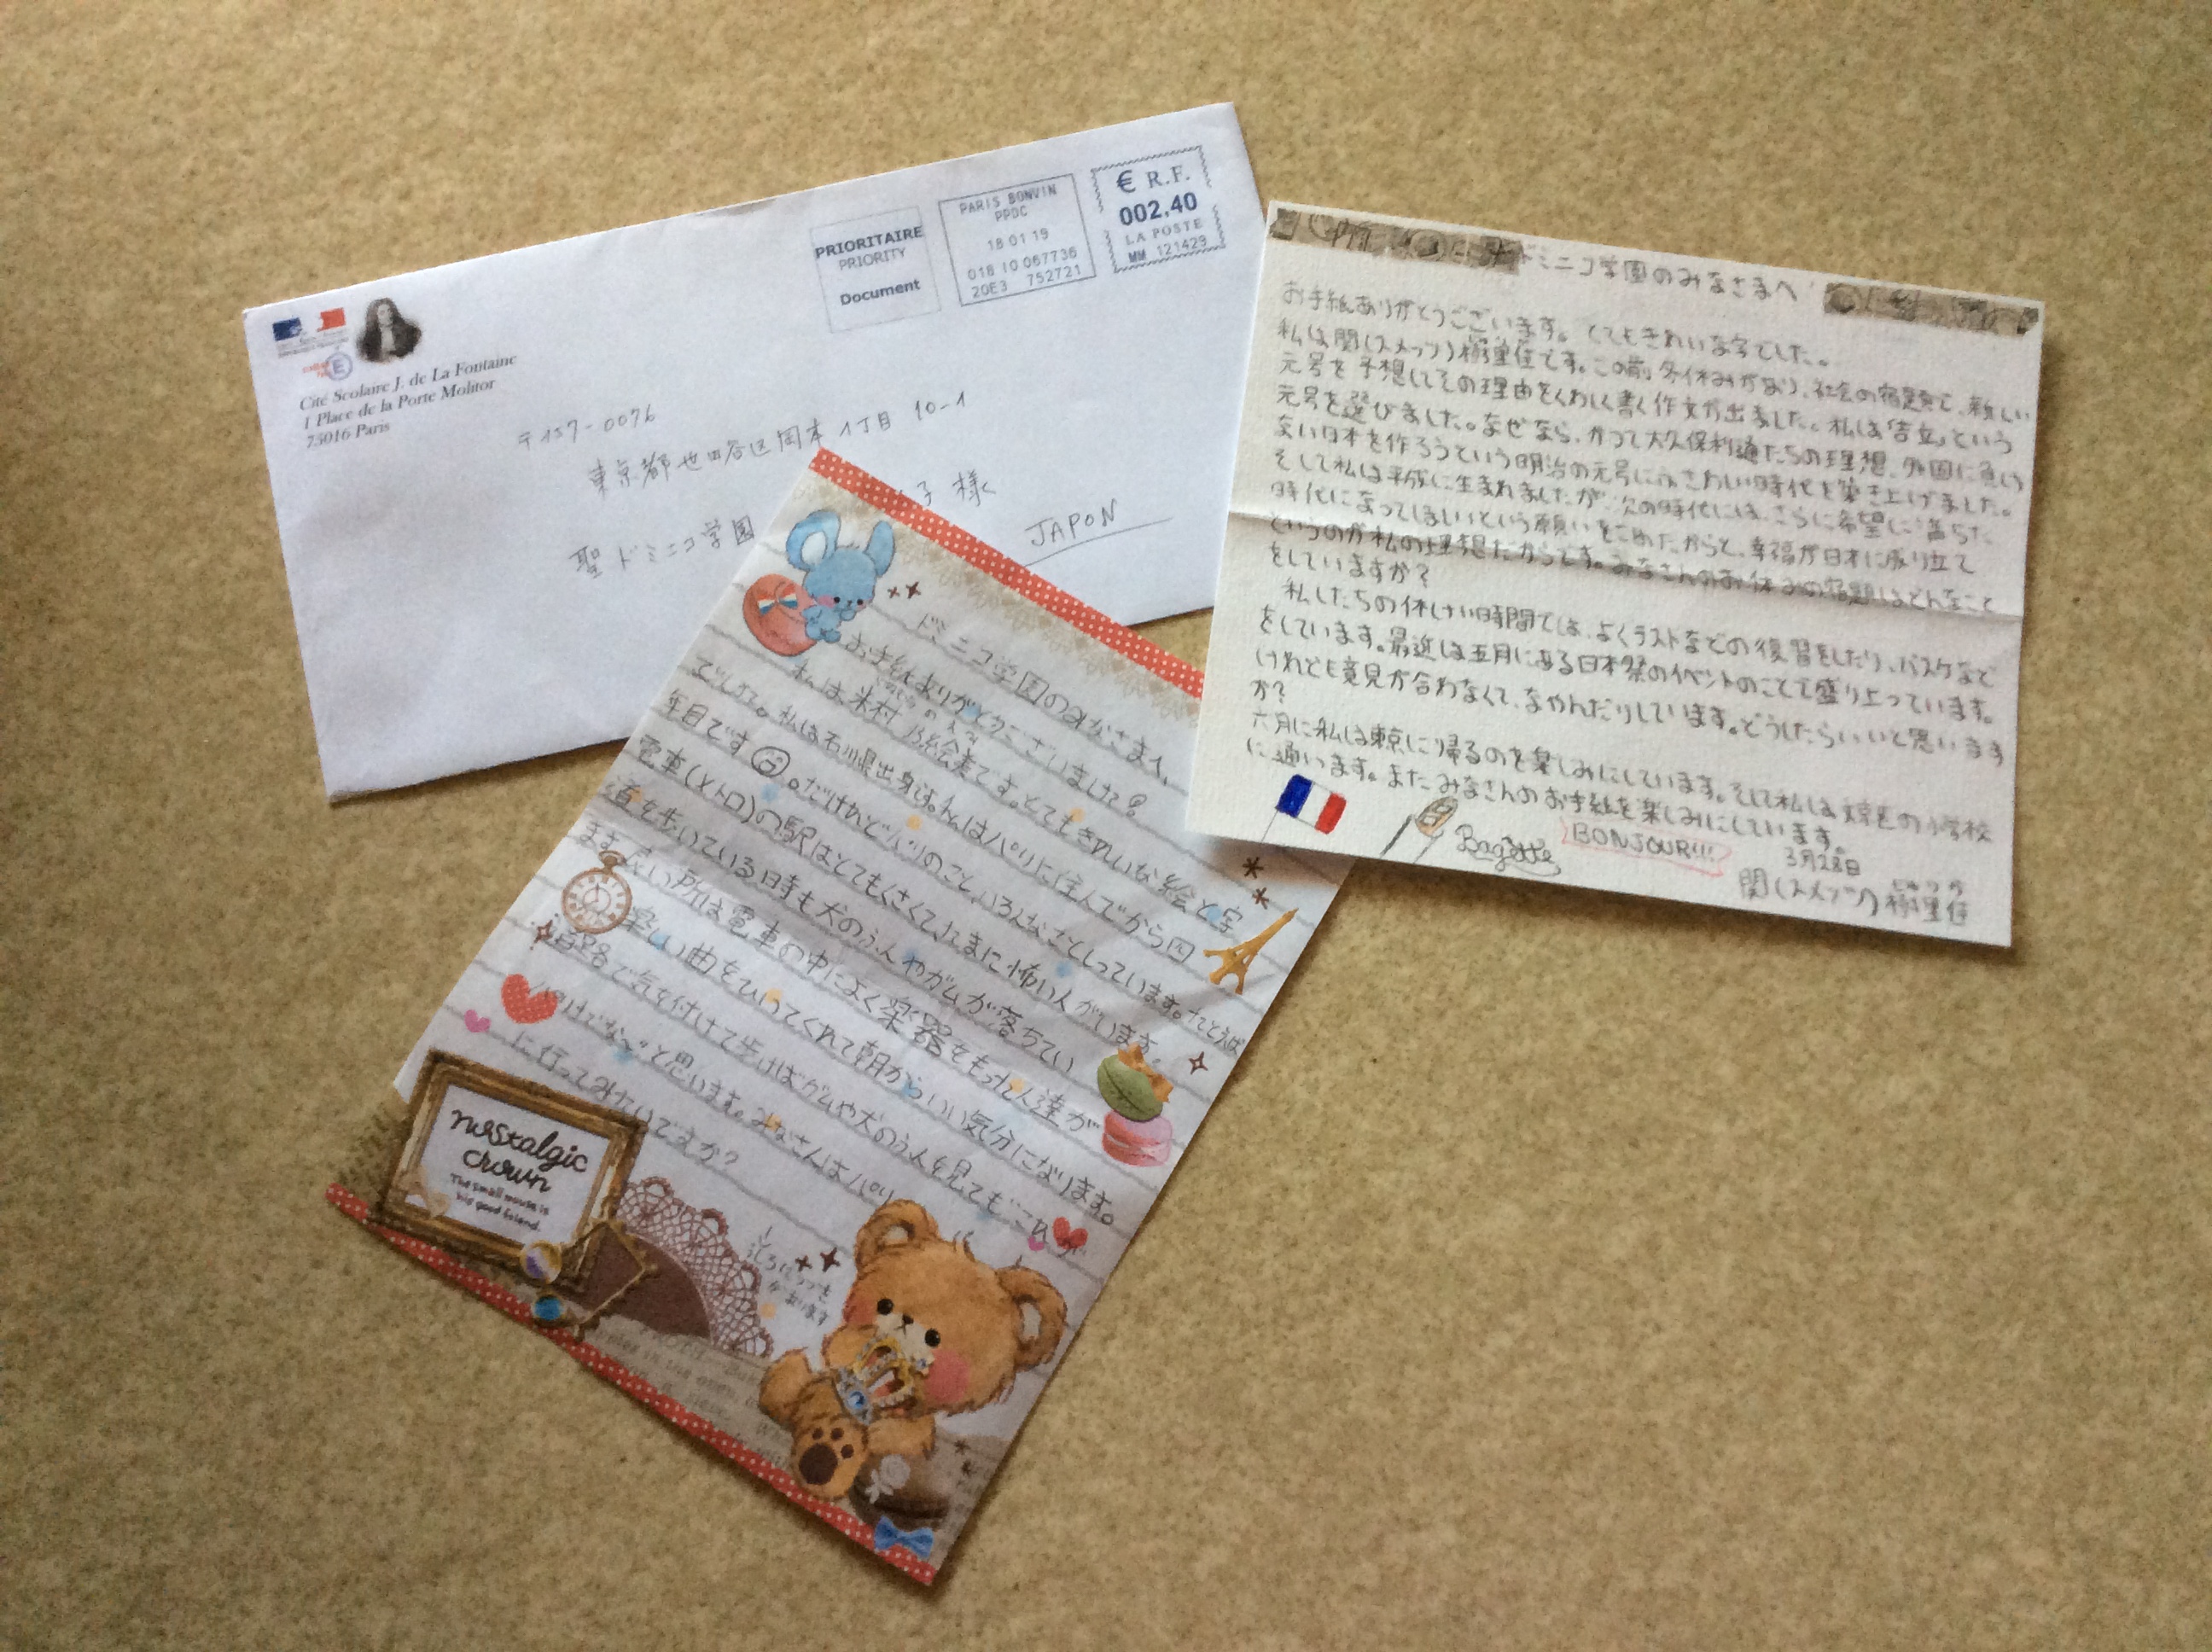 Cité Scolaire J. de La Fontaine
1 Place de la Porte Molitor
75016 Paris
PRIORITAIRE
PRIORITY
Document
PARIS BONVIN
PPDC
18 01 19
018 10 067736
20E3 752721
€ R.F.
002,40
LA POSTE
MM 121429
〒157-0076
東京都世田谷区岡本1丁目10-1
聖ドミニコ学園
子様
JAPON
ドミニコ学園のみなさまへ
お手紙ありがとうございます。とてもきれいな字でした。
私は関(スメッツ)樹里佳です。この前、冬休みがあり、社会の宿題で、新しい
元号を予想してその理由をくわしく書く作文が出ました。私は「吉立」という
元号を選びました。なぜなら、かつて大久保利通たちの理想、外国に負けな
い日本を作ろうという明治の元号にふさわしい時代を築き上げました。
そして私は平成に生まれましたが、次の時代には、さらに希望に満ちた
時代になってほしいという願いをこめたからと、幸福が日本に成り立て
というのが私の理想だからです。みなさんのお休みの宿題はどんなこと
をしていますか?
私したちの休けい時間では、よくテストなどの復習をしたり、バスケなど
をしています。最近は五月にある日本祭のイベントのことで盛り上っています。
けれども意見が合わなくて、なやんだりしています。どうしたらいいと思います
か?
六月に私は東京に帰るのを楽しみにしています。そして私は練馬の小学校
に通います。またみなさんのお手紙を楽しみにしています。
Bagette
BONJOUR!!!
3月28日
関(スメッツ)樹里佳
ドミニコ学園のみなさまへ
お手紙ありがとうございました
私は米村 乃絵美です。とてもきれいな絵と字
でした。私は石川県出身です。私はパリに住んでから四
年目です。だけれどパリのこと、いろんなことしっています。たとえば
電車(メトロ)の駅はとてもくさくて、たまに怖い人がいます。
道を歩いている時も犬のふんやガムが落ちてい
ます。良い所は電車の中によく楽器をもった人達が
楽しい曲をひいてくれて朝からいい気分になります。
道路で気を付けて歩けばガムや犬のふんを見ても
だけでな~と思います。みなさんはパリ
に行ってみたいですか?
うしろにつづき
があります
nostalgic
crown
The small mouse is
his good friend.